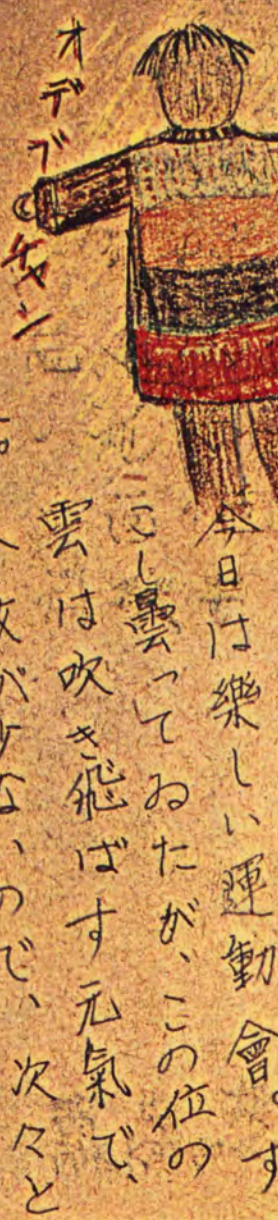 オデブチャン
今日は樂しい運動會。す
こし曇ってゐたが、この位の
雲は吹き飛ばす元氣で、
人数が少ないので、次々と